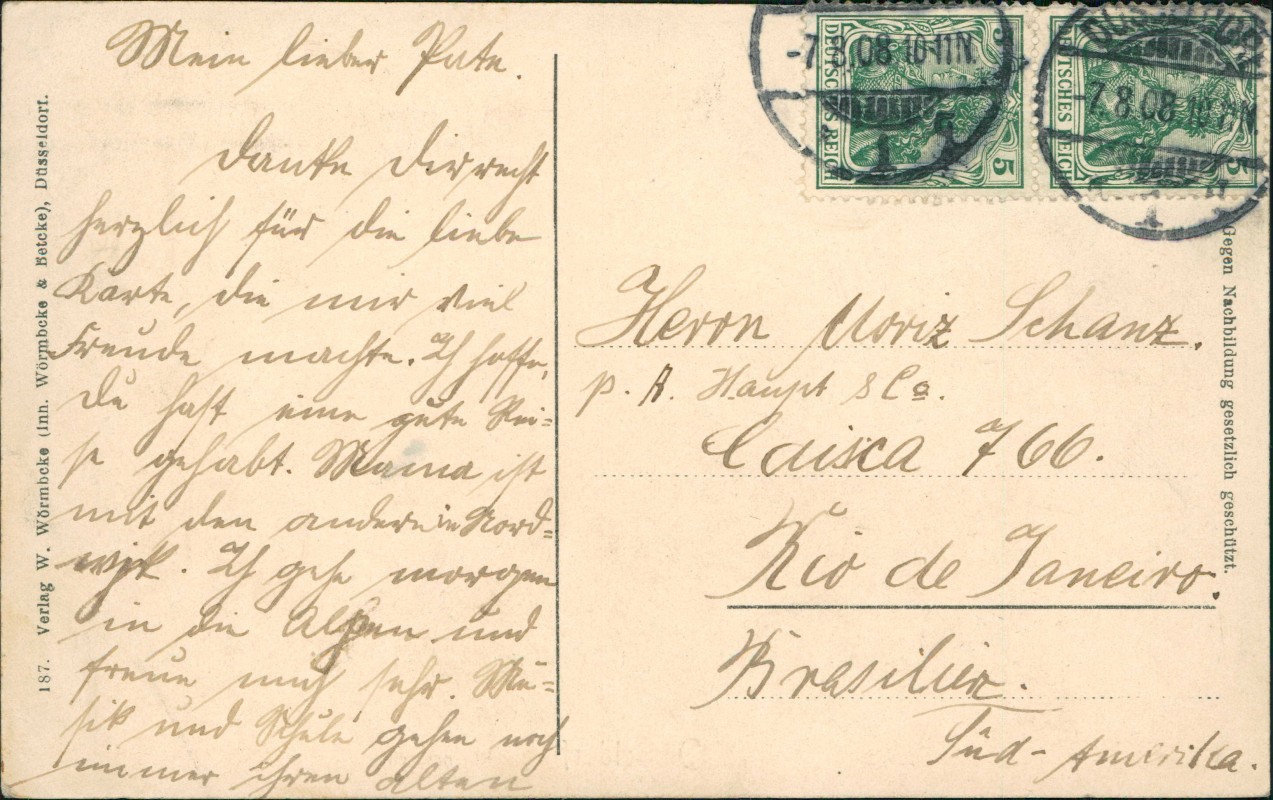 Mein lieber Pate.
Danke Dir recht
herzlich für die liebe
Karte, die mir viel
Freude machte. Ich hoffe,
Du hast eine gute Rei=
se gehabt. Mama ist
mit den anderen in Nord=
wijk. Ich gehe morgen
in die Alpen und
freue mich sehr. Mu=
sik und Schule gehen noch
immer ihren alten
187. Verlag W. Wörmbcke (Inh. Wörmbcke & Betcke), Düsseldorf.
DEUTSCHES REICH
5
5
-7.8.08 10-11N.
1
DEUTSCHES REICH
5
DÜSSELDORF
-7.8.08 10-11N.
1
Herrn Moriz Schanz.
p. A. Haupt & Co.
Caixa 766.
Rio de Janeiro.
Brasilien.
Süd-Amerika.
Gegen Nachbildung gesetzlich geschützt.